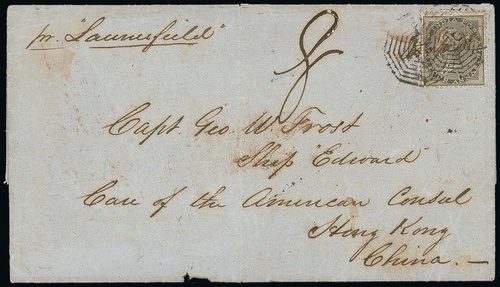 pr. "Launcefield"
8
Capt Geo. W. Frost
Ship Edward
Care of the American Consul
Hong Kong
China. —